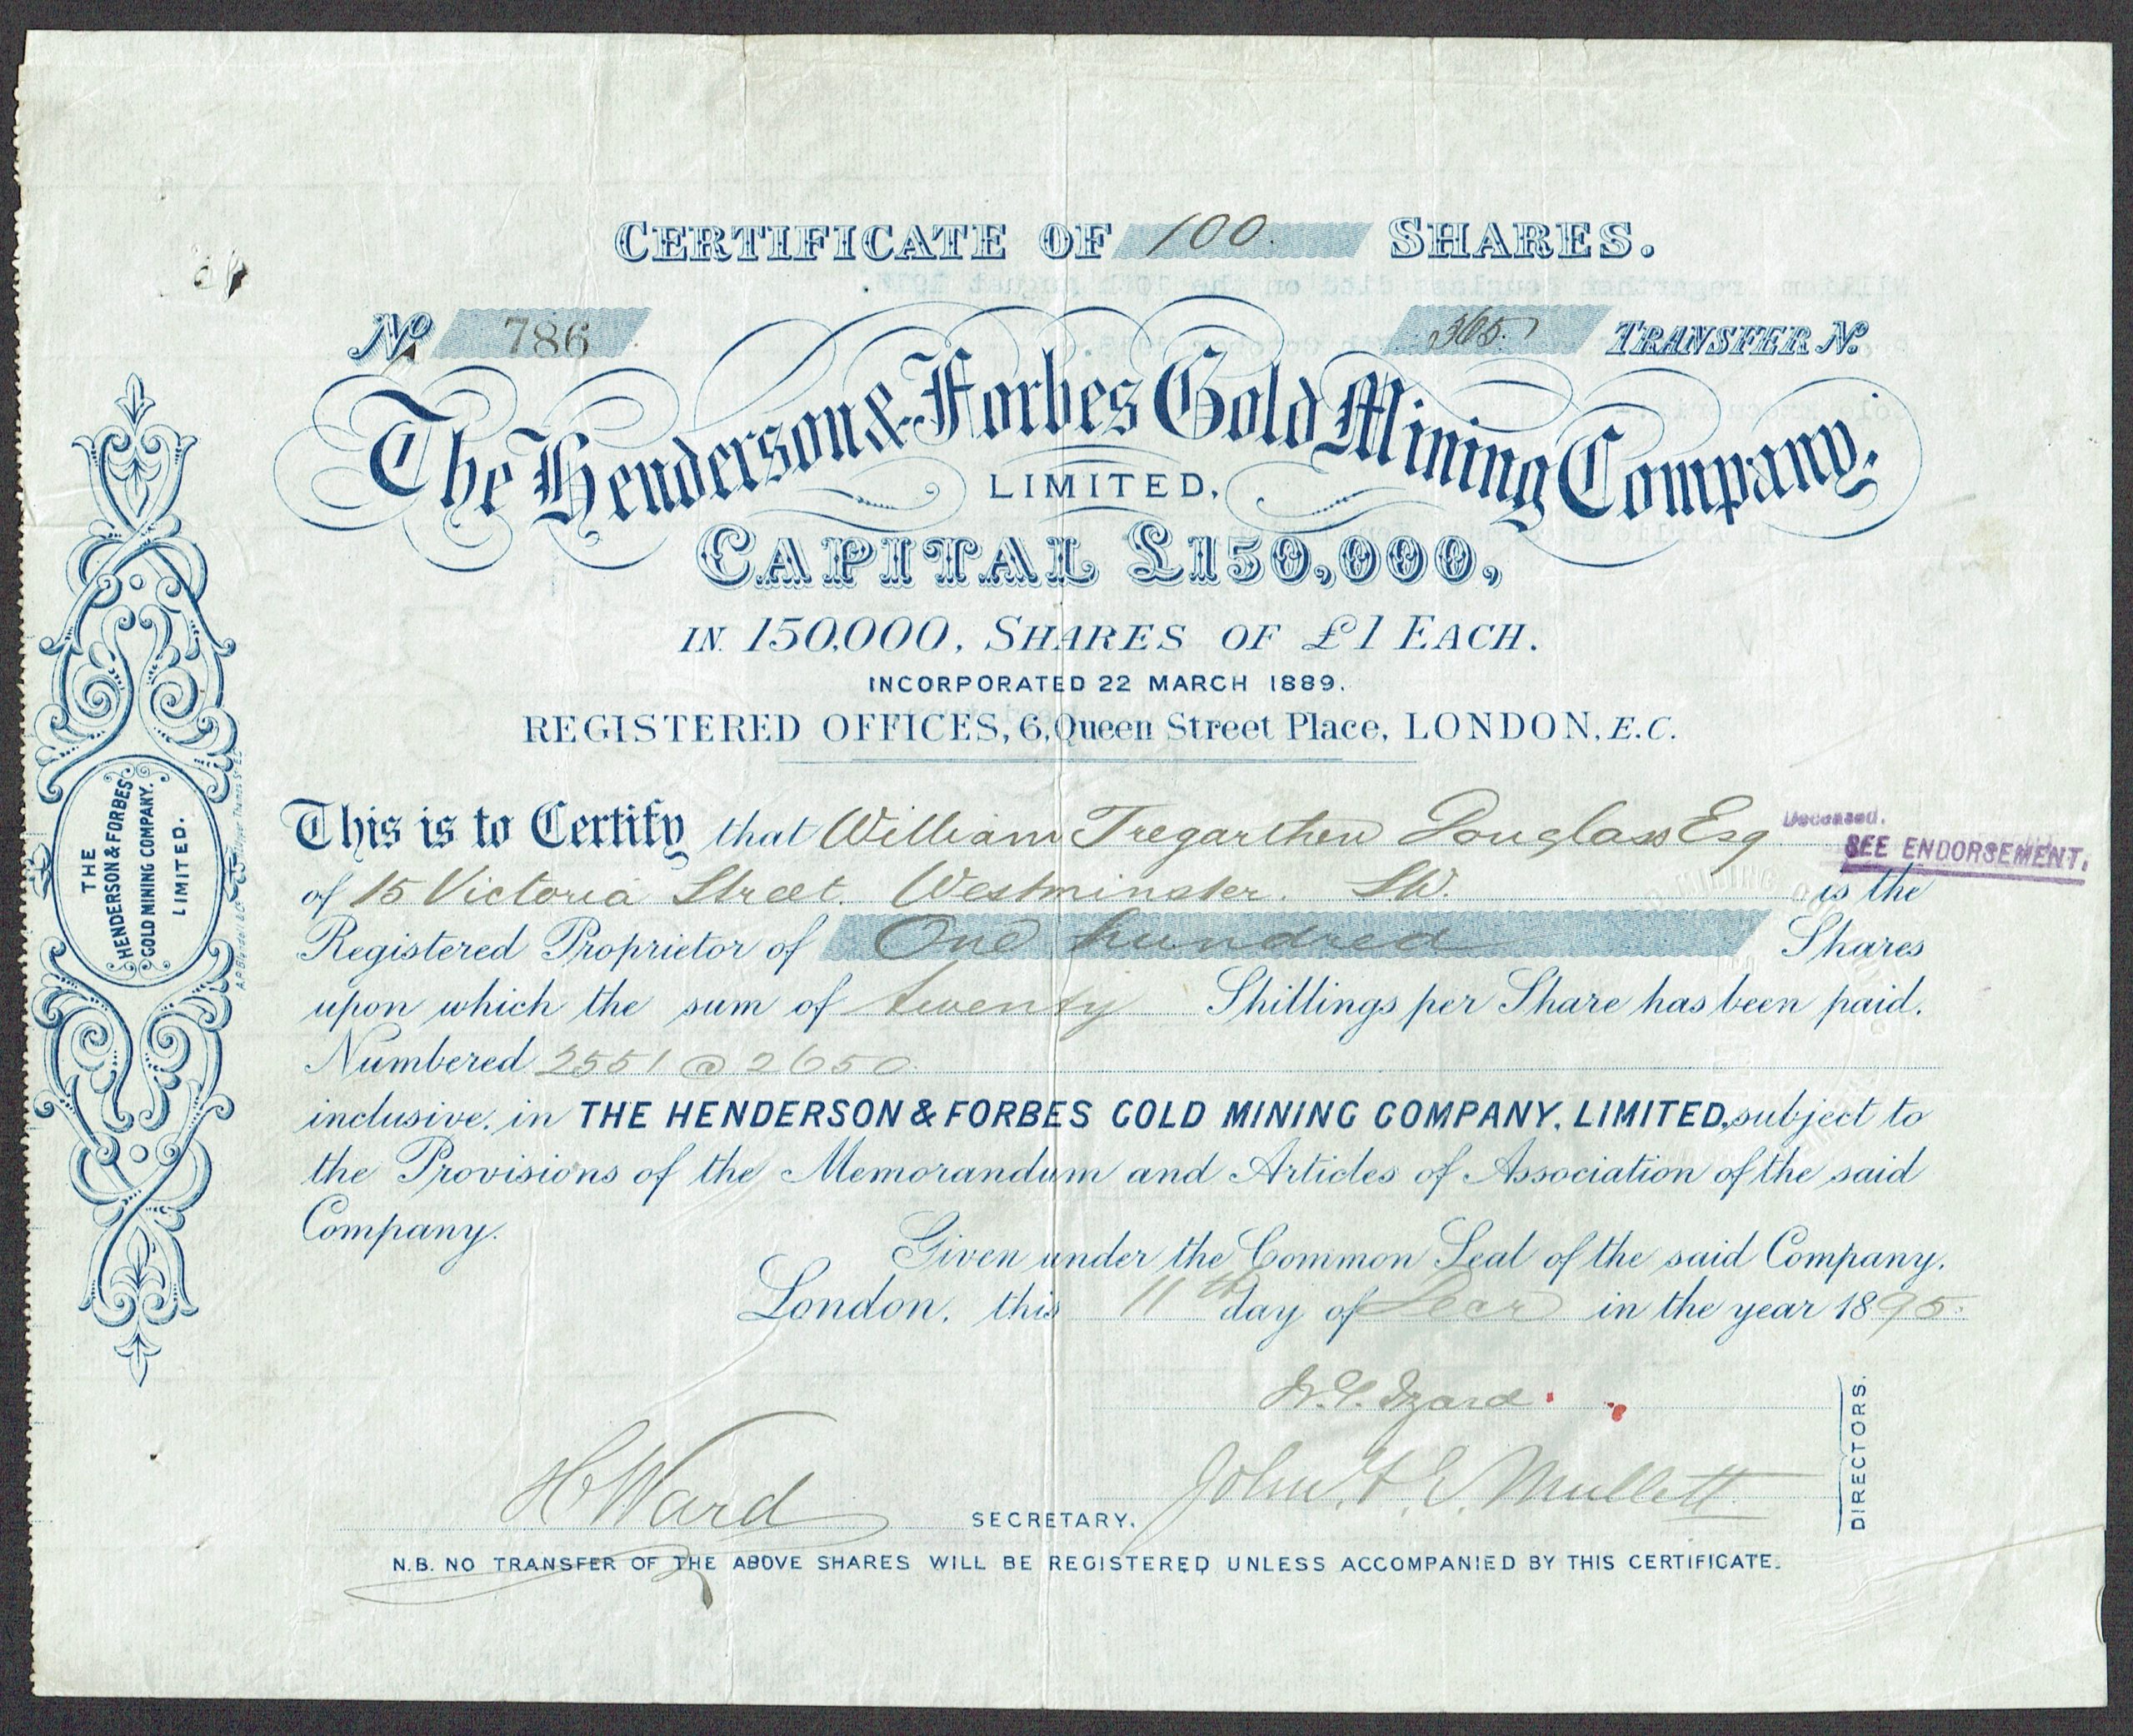 CERTIFICATE OF 100. SHARES.
No 786
365. TRANSFER No.
The Henderson & Forbes Gold Mining Company,
LIMITED,
CAPITAL £150,000,
IN 150,000, SHARES OF £1 EACH.
INCORPORATED 22 MARCH 1889.
REGISTERED OFFICES, 6, Queen Street Place, LONDON, E.C.
This is to Certify that William Tregarthen Douglass Esq
Deceased.
SEE ENDORSEMENT.
of 15 Victoria Street. Westminster. SW. is the
Registered Proprietor of One hundred Shares
upon which the sum of twenty Shillings per Share has been paid.
Numbered 2551 @ 2650.
inclusive, in THE HENDERSON & FORBES GOLD MINING COMPANY, LIMITED, subject to
the Provisions of the Memorandum and Articles of Association of the said
Company.
Given under the Common Seal of the said Company.
London, this 11th day of Decr in the year 1895.
Izard
John Mullett
DIRECTORS.
H Ward SECRETARY.
N.B. NO TRANSFER OF THE ABOVE SHARES WILL BE REGISTERED UNLESS ACCOMPANIED BY THIS CERTIFICATE.
THE
HENDERSON & FORBES
GOLD MINING COMPANY.
LIMITED.